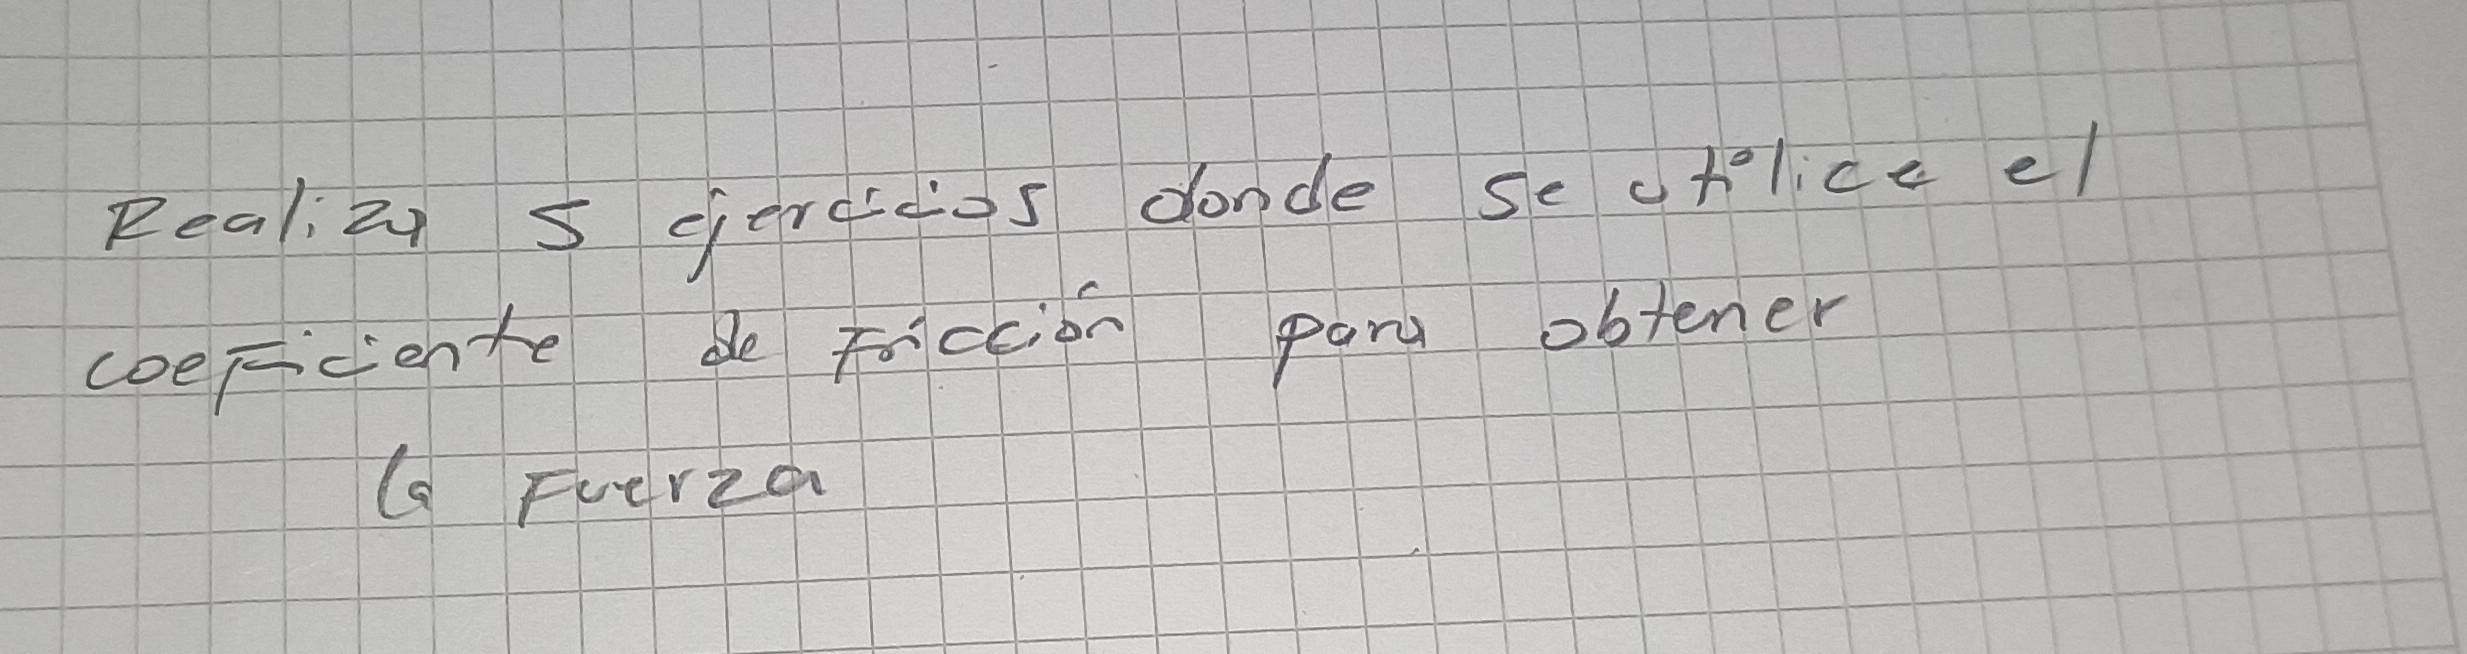 Realizar 5 ejercicios donde se utilice el
coeficiente de fricción para obtener
la Fuerza